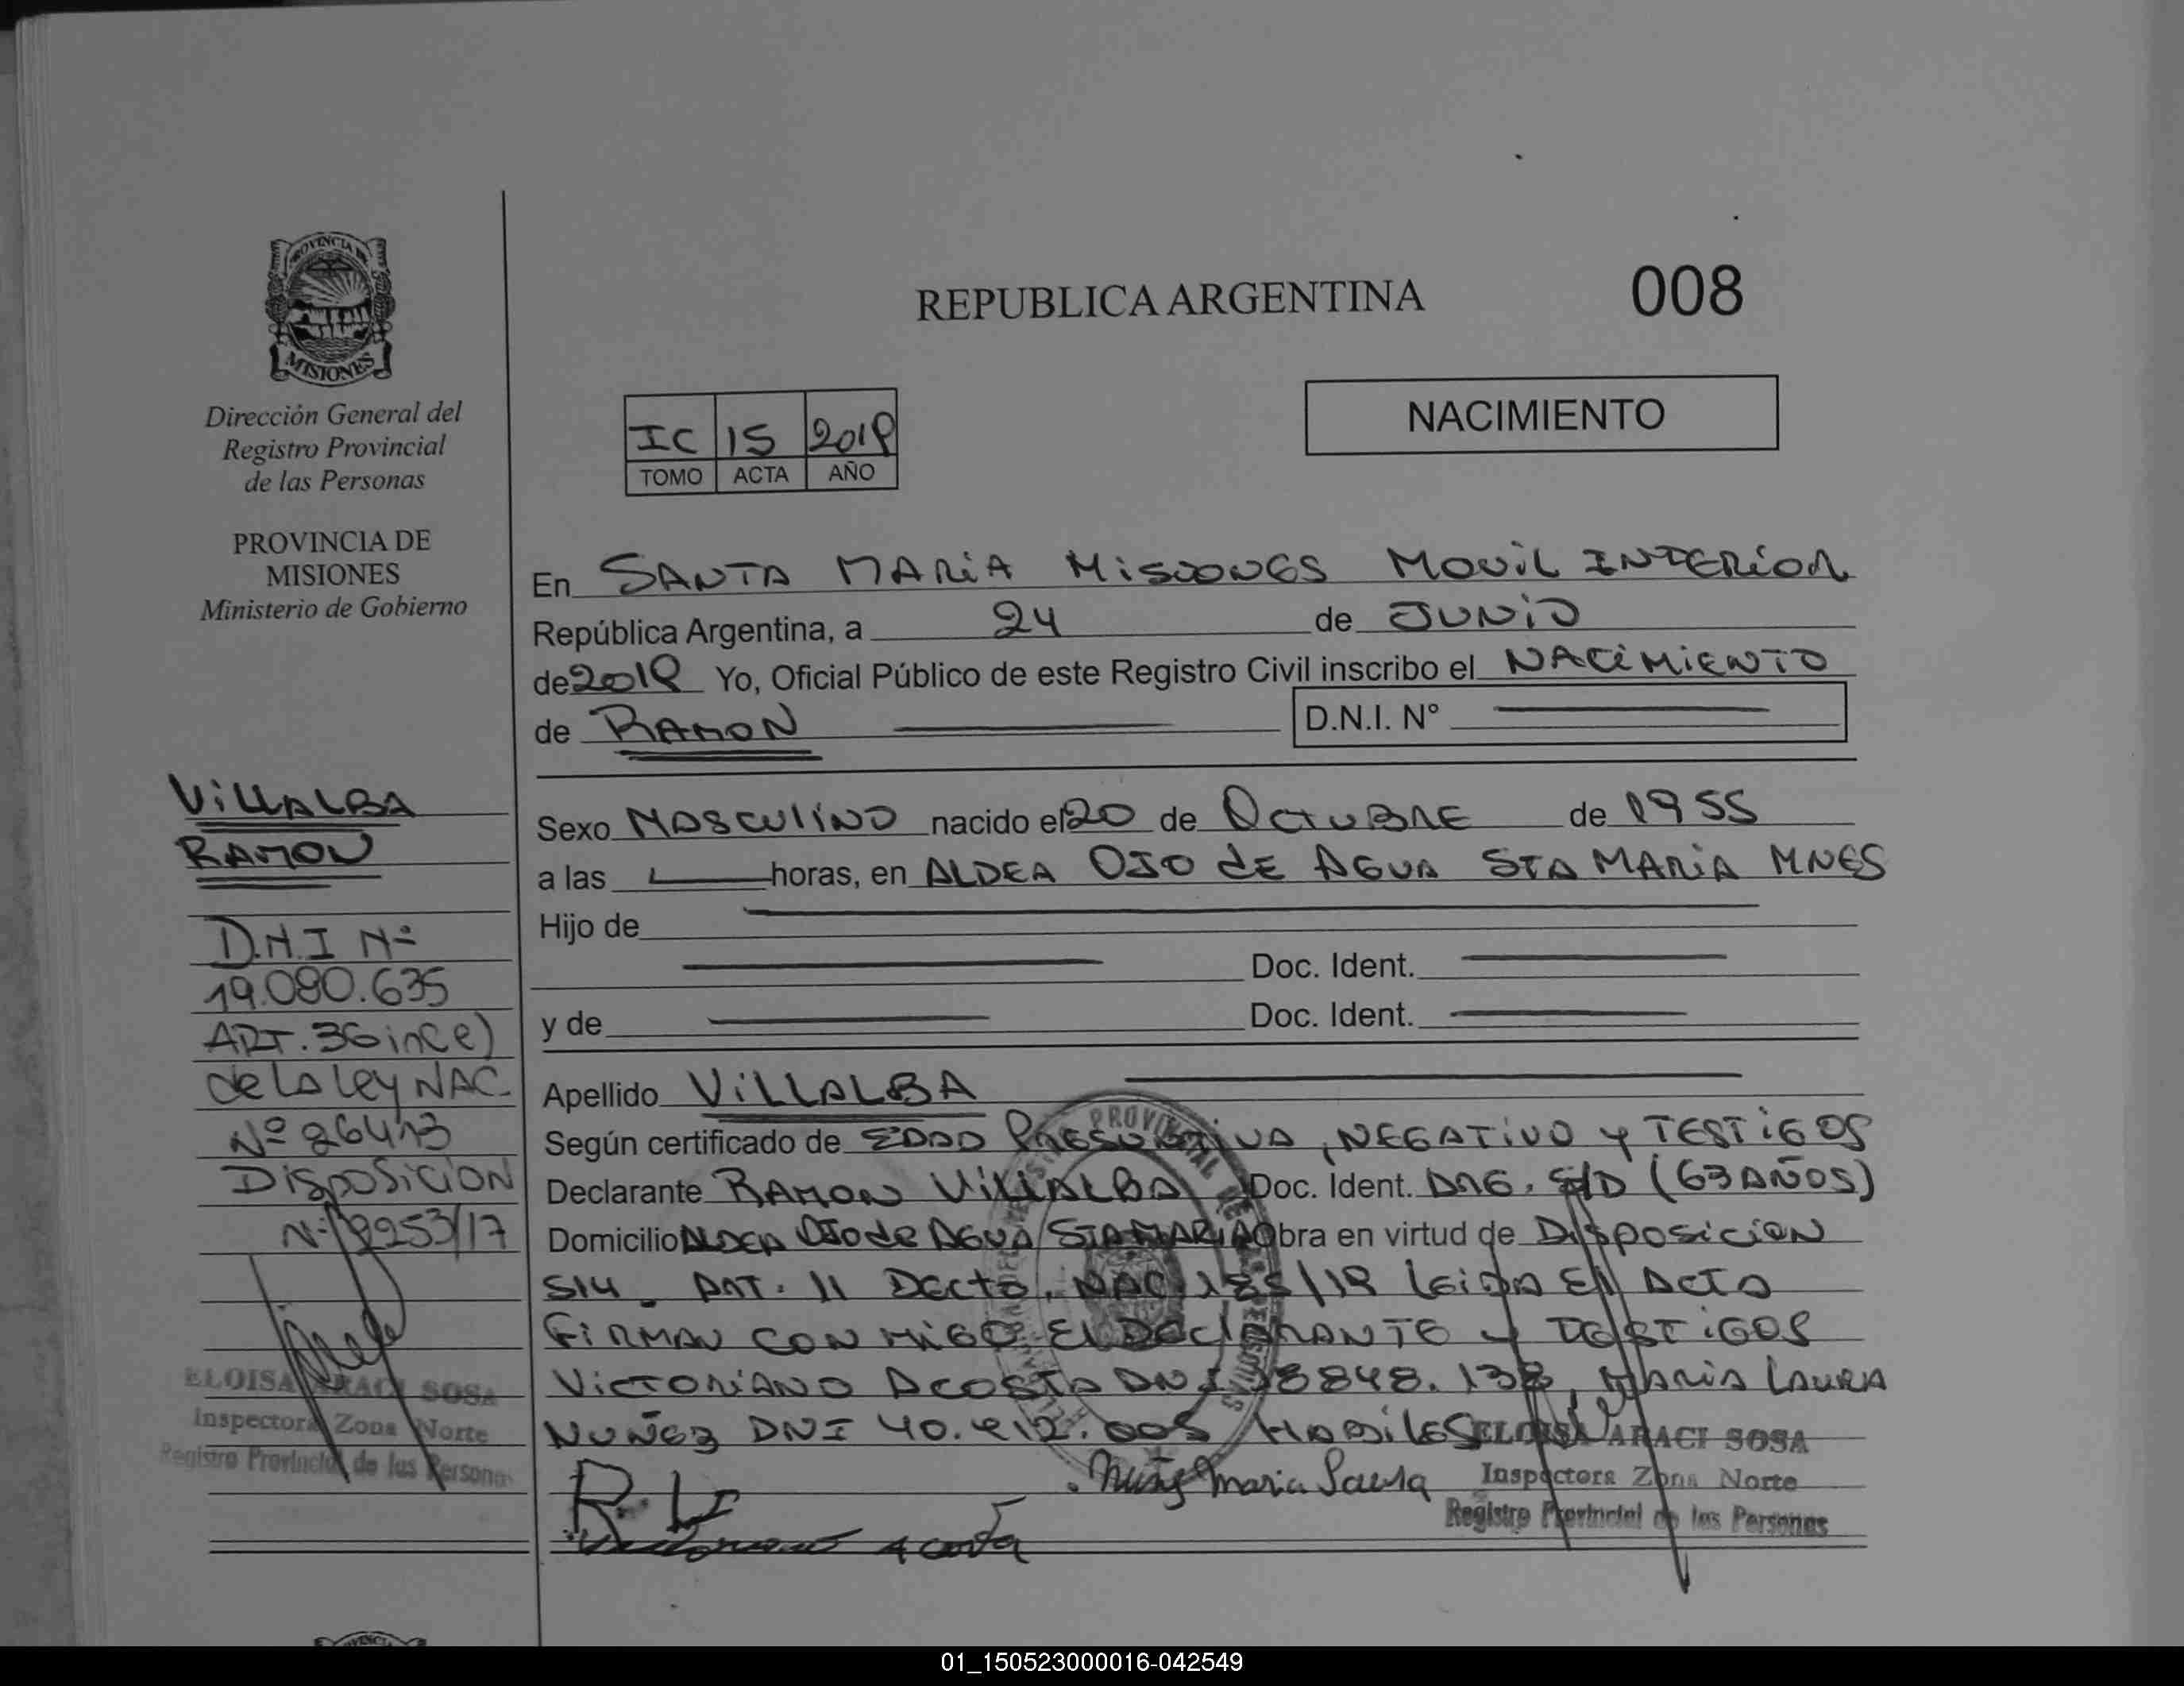 PROVINCIA DE
MISIONES
Dirección General del
Registro Provincial
de las Personas
PROVINCIA DE
MISIONES
Ministerio de Gobierno
VILLALBA
RAMON
D.N.I Nº
19.080.635
ART. 36 inc e)
de la ley NAC.
Nº 26413
DISPOSICION
Nº 2253/17
ELOISA ARACI SOSA
Inspectora Zona Norte
Registro Provincial de las Personas
REPUBLICA ARGENTINA
008
NACIMIENTO
IC 15 2018
TOMO ACTA AÑO
En SANTA MARIA MISIONES MOVIL INTERIOR
República Argentina, a 24 de JUNIO
de 2018 Yo, Oficial Público de este Registro Civil inscribo el NACIMIENTO
de RAMON D.N.I. N°
Sexo MASCULINO nacido el 20 de OCTUBRE de 1955
a las horas, en ALDEA OJO de AGUA STA MARIA MNES
Hijo de
Doc. Ident.
y de Doc. Ident.
Apellido VILLALBA
Según certificado de EDAD PRESUNTIVA, NEGATIVO y TESTIGOS
Declarante RAMON VILLALBA Doc. Ident. S/D (63 AÑOS)
Domicilio ALDEA OJO de AGUA STA MARIA Obra en virtud de DISPOSICION
514. ART. 11 Decto. NAC 185/18 leida El ACTA
FIRMAN CON MIGO El DECLARANTE y TESTIGOS
VICTORIANO ACOSTA DNI 18848.138, MARIA LAURA
NUÑEZ DNI 40.412.005 HABILES
ELOISA ARACI SOSA
Inspectora Zona Norte
Registro Provincial de las Personas
Nuñez Maria Laura
Victoriano Acosta
01_150523000016-042549